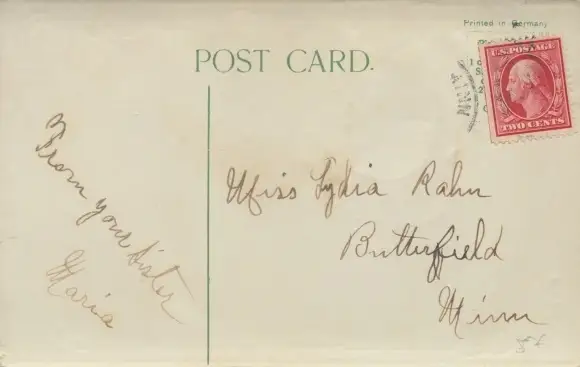 Printed in Germany
POST CARD.
U.S. POSTAGE
TWO CENTS
MINN
From your Sister
Maria
Miss Lydia Rahn
Butterfield
Minn